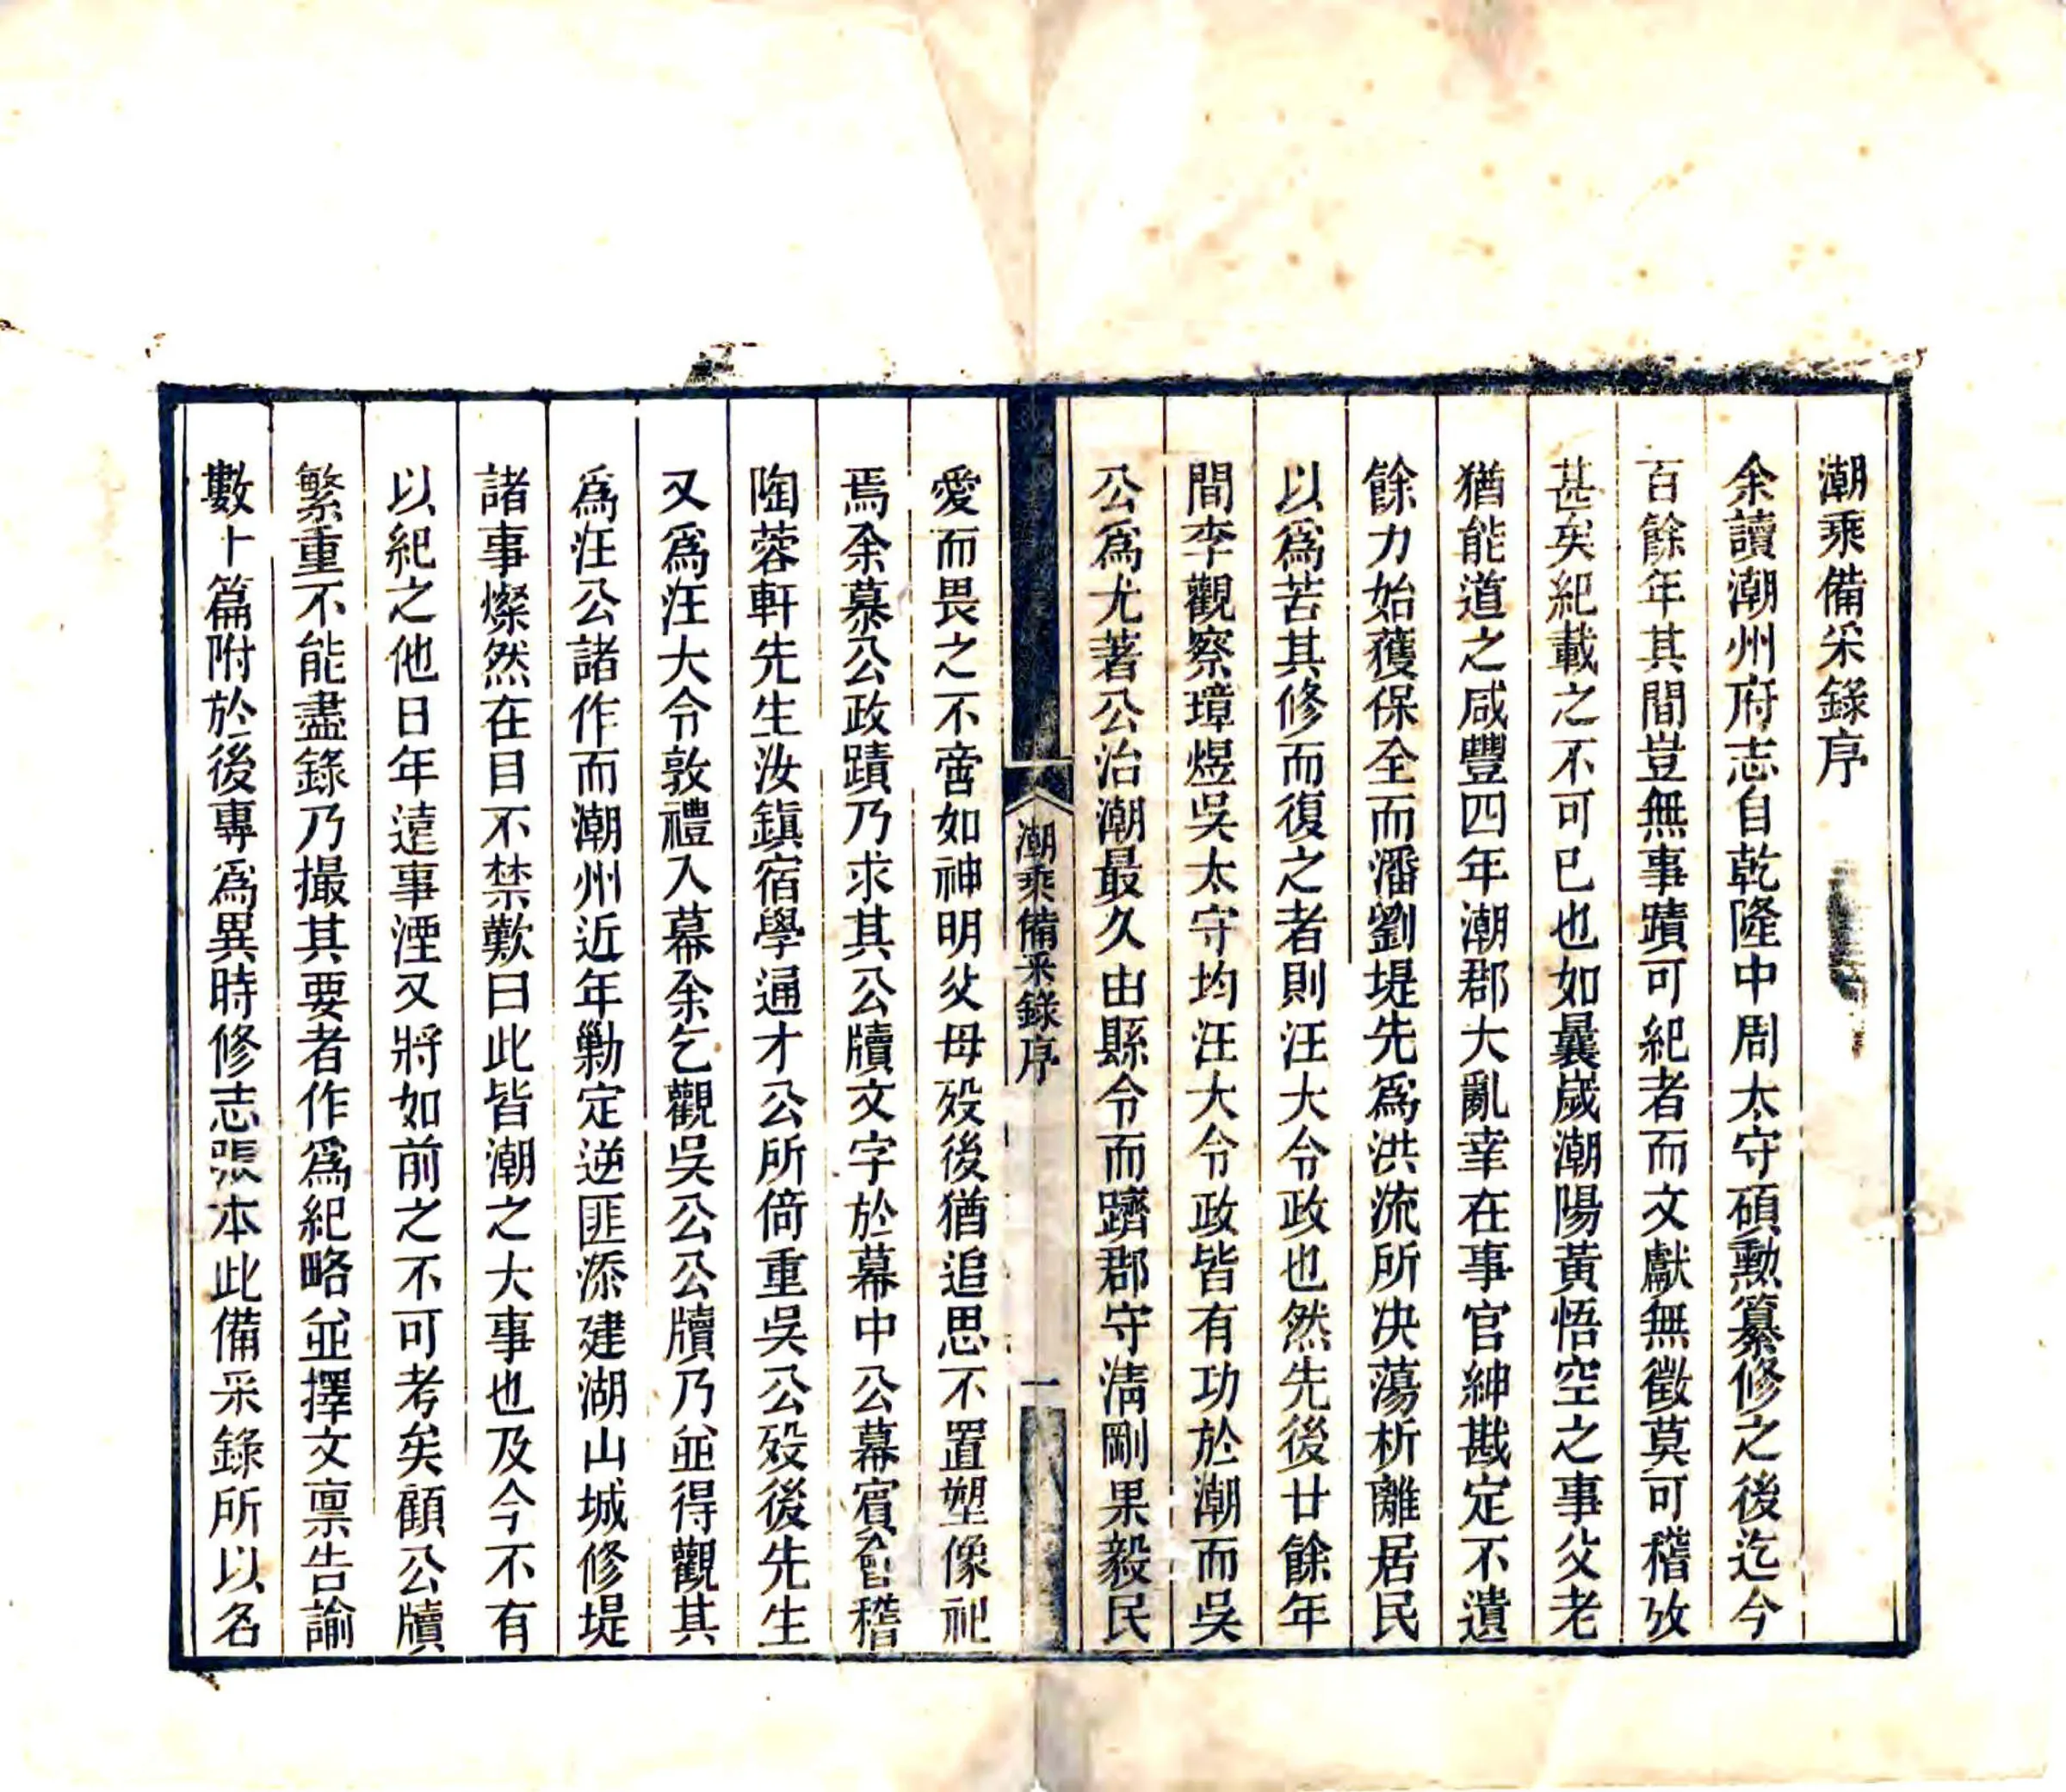 潮乘備采錄序
余讀潮州府志自乾隆中周太守碩勲纂修之後迄今
百餘年其間豈無事蹟可紀者而文獻無徵莫可稽攷
甚矣紀載之不可已也如曩歲潮陽黃悟空之事父老
猶能道之咸豐四年潮郡大亂幸在事官紳戡定不遺
餘力始獲保全而潘劉堤先爲洪流所决蕩析離居民
以爲苦其修而復之者則汪大令政也然先後廿餘年
間李觀察璋煜吳太守均汪大令政皆有功於潮而吳
公爲尤著公治潮最久由縣令而躋郡守淸剛果毅民
潮乘備采錄序
一
愛而畏之不啻如神明父母歿後猶追思不置塑像祀
焉余慕公政蹟乃求其公牘文字於幕中公幕賓會稽
陶蓉軒先生汝鎭宿學通才公所倚重吳公歿後先生
又爲汪大令敦禮入幕余乞觀吳公公牘乃並得觀其
爲汪公諸作而潮州近年勦定逆匪添建湖山城修堤
諸事燦然在目不禁歎曰此皆潮之大事也及今不有
以紀之他日年遠事湮又將如前之不可考矣顧公牘
繁重不能盡錄乃撮其要者作爲紀略並擇文禀告諭
數十篇附於後專爲異時修志張本此備采錄所以名